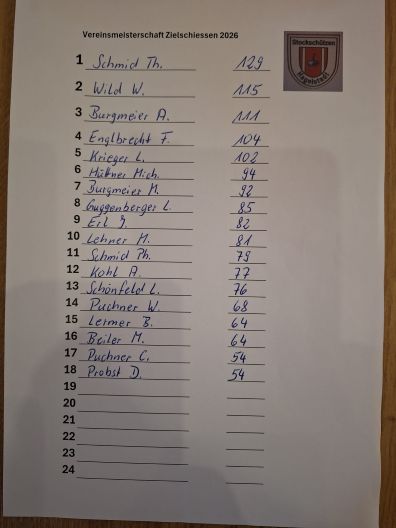 Vereinsmeisterschaft Zielschiessen 2026
Stockschützen
Hagelstadt
1 Schmid Th. 129
2 Wild W. 115
3 Burgmeier A. 111
4 Englbrecht F. 104
5 Krieger L. 102
6 Hüttner Mich. 94
7 Burgmeier M. 92
8 Guggenberger L. 85
9 Erl J. 82
10 Lehner M. 81
11 Schmid Ph. 79
12 Kohl A. 77
13 Schönfeld L. 76
14 Puchner W. 68
15 Lermer B. 64
16 Beiler M. 64
17 Puchner C. 54
18 Probst D. 54
19
20
21
22
23
24